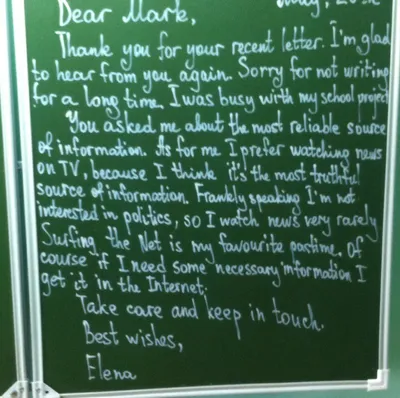 Dear Mark,
Thank you for your recent letter. I'm glad
to hear from you again. Sorry for not writing
for a long time. I was busy with my school project
You asked me about the most reliable source
of information. As for me I prefer watching news
on TV, because I think it's the most truthful
source of information. Frankly speaking I'm not
interested in politics, so I watch news very rarely
Surfing the Net is my favourite pastime. Of
course if I need some necessary information I
get it in the Internet.
Take care and keep in touch.
Best wishes,
Elena